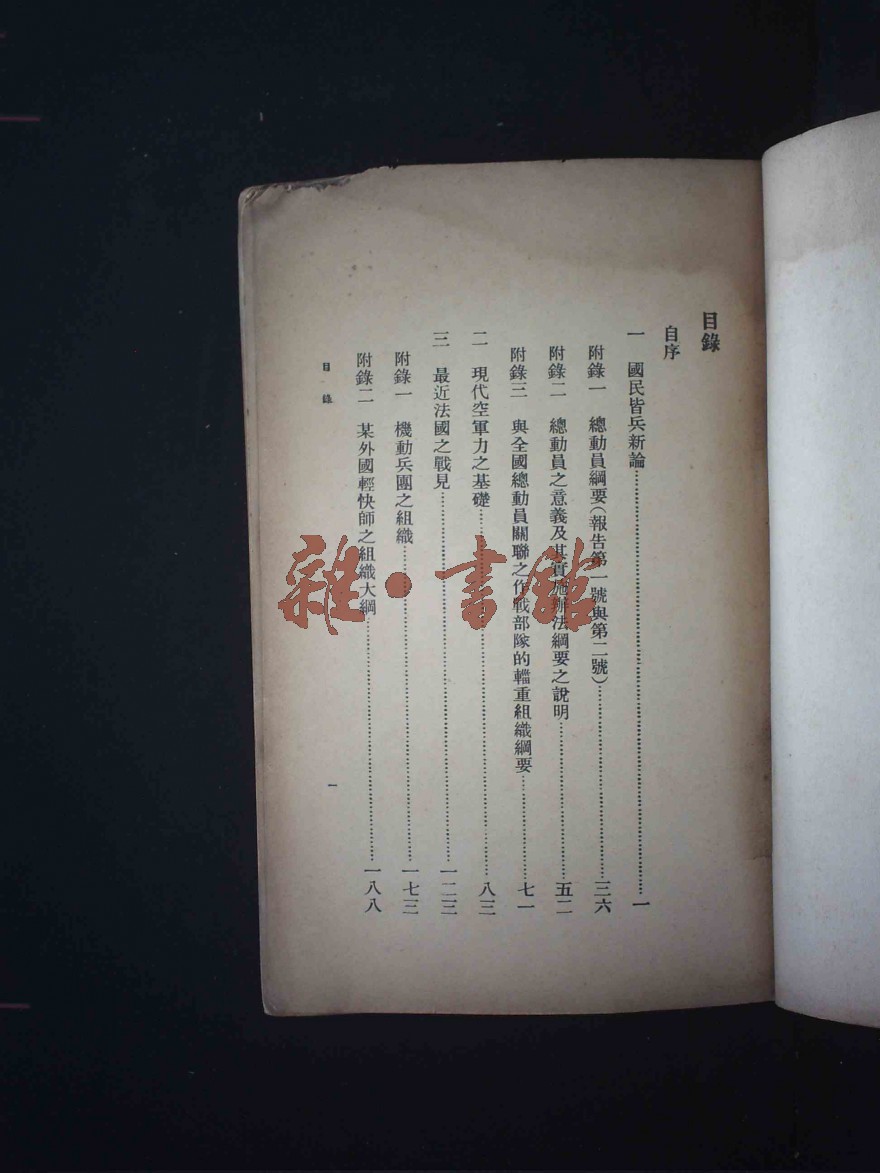 目錄
自序
一　國民皆兵新論……………………一
附錄一　總動員綱要(報告第一號與第二號)……………………三六
附錄二　總動員之意義及其實施辦法綱要之說明……………………五二
附錄三　與全國總動員關聯之作戰部隊的輜重組織綱要……………………七一
二　現代空軍力之基礎……………………八三
三　最近法國之戰見……………………一二三
附錄一　機動兵團之組織……………………一七三
附錄二　某外國輕快師之組織大綱……………………一八八
目錄
一
雜·書館